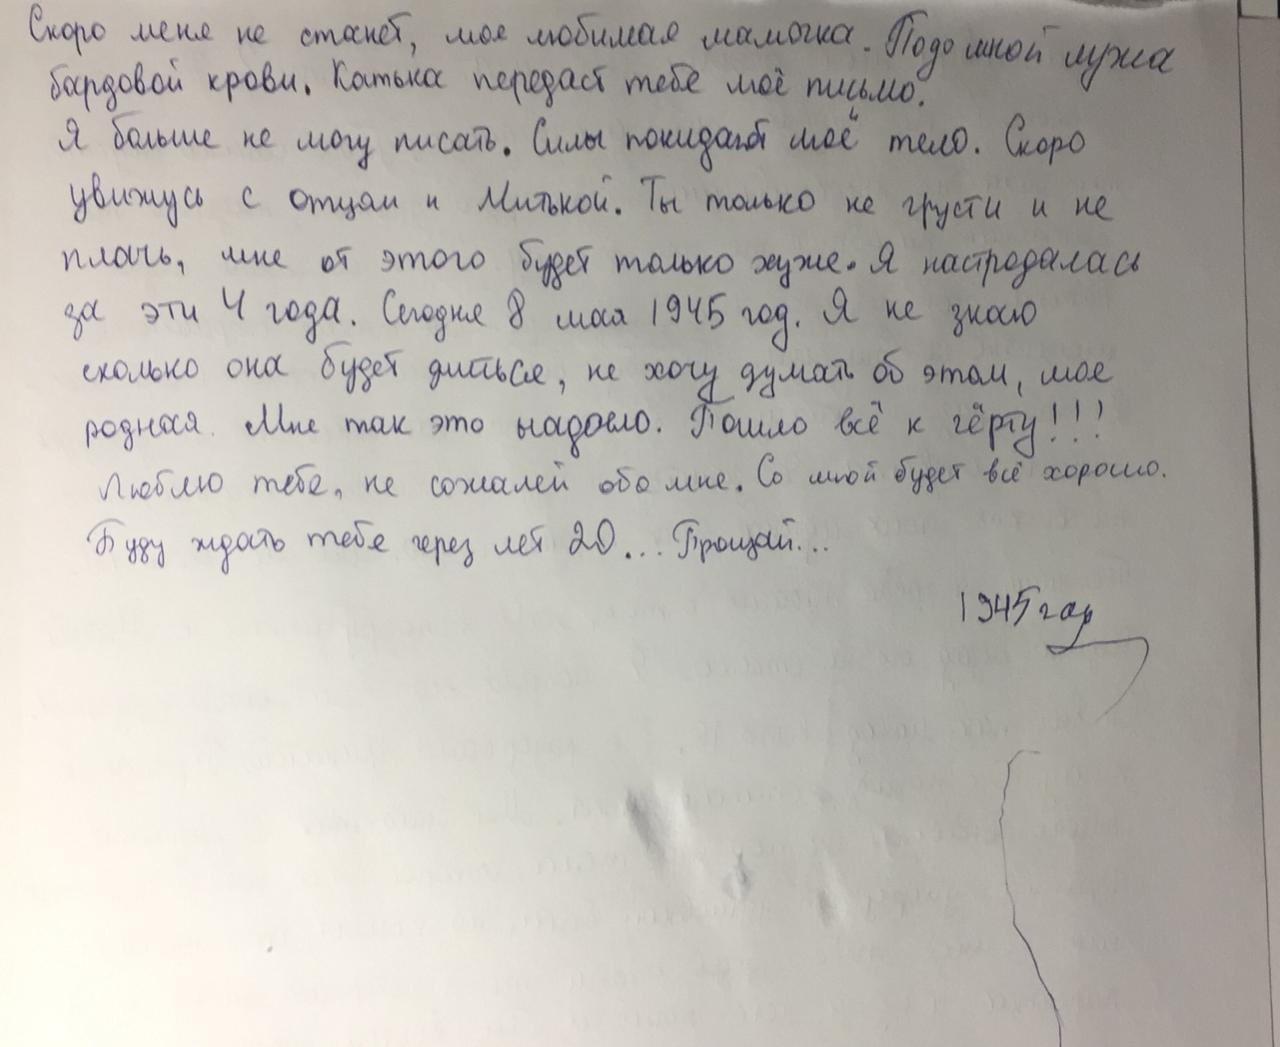 Скоро меня не станет, моя любимая мамочка. Подо мной лужа
бардовой крови. Катька передаст тебе моё письмо.
Я больше не могу писать. Силы покидают моё тело. Скоро
увижусь с отцом и Митькой. Ты только не грусти и не
плачь, мне от этого будет только хуже. Я настродалась
за эти 4 года. Сегодня 8 мая 1945 год. Я не знаю
сколько она будет диться, не хочу думать об этом, моя
родная. Мне так это надоело. Пошло всё к чёрту!!!
Люблю тебя, не сожалей обо мне. Со мной будет всё хорошо.
Буду ждать тебя через лет 20... Прощай...
1945 год